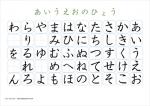 あいうえおのひょう
あいうえお
かきくけこ
さしすせそ
たちつてと
なにぬねの
はひふへほ
まみむめも
やゆよ
らりるれろ
わをん